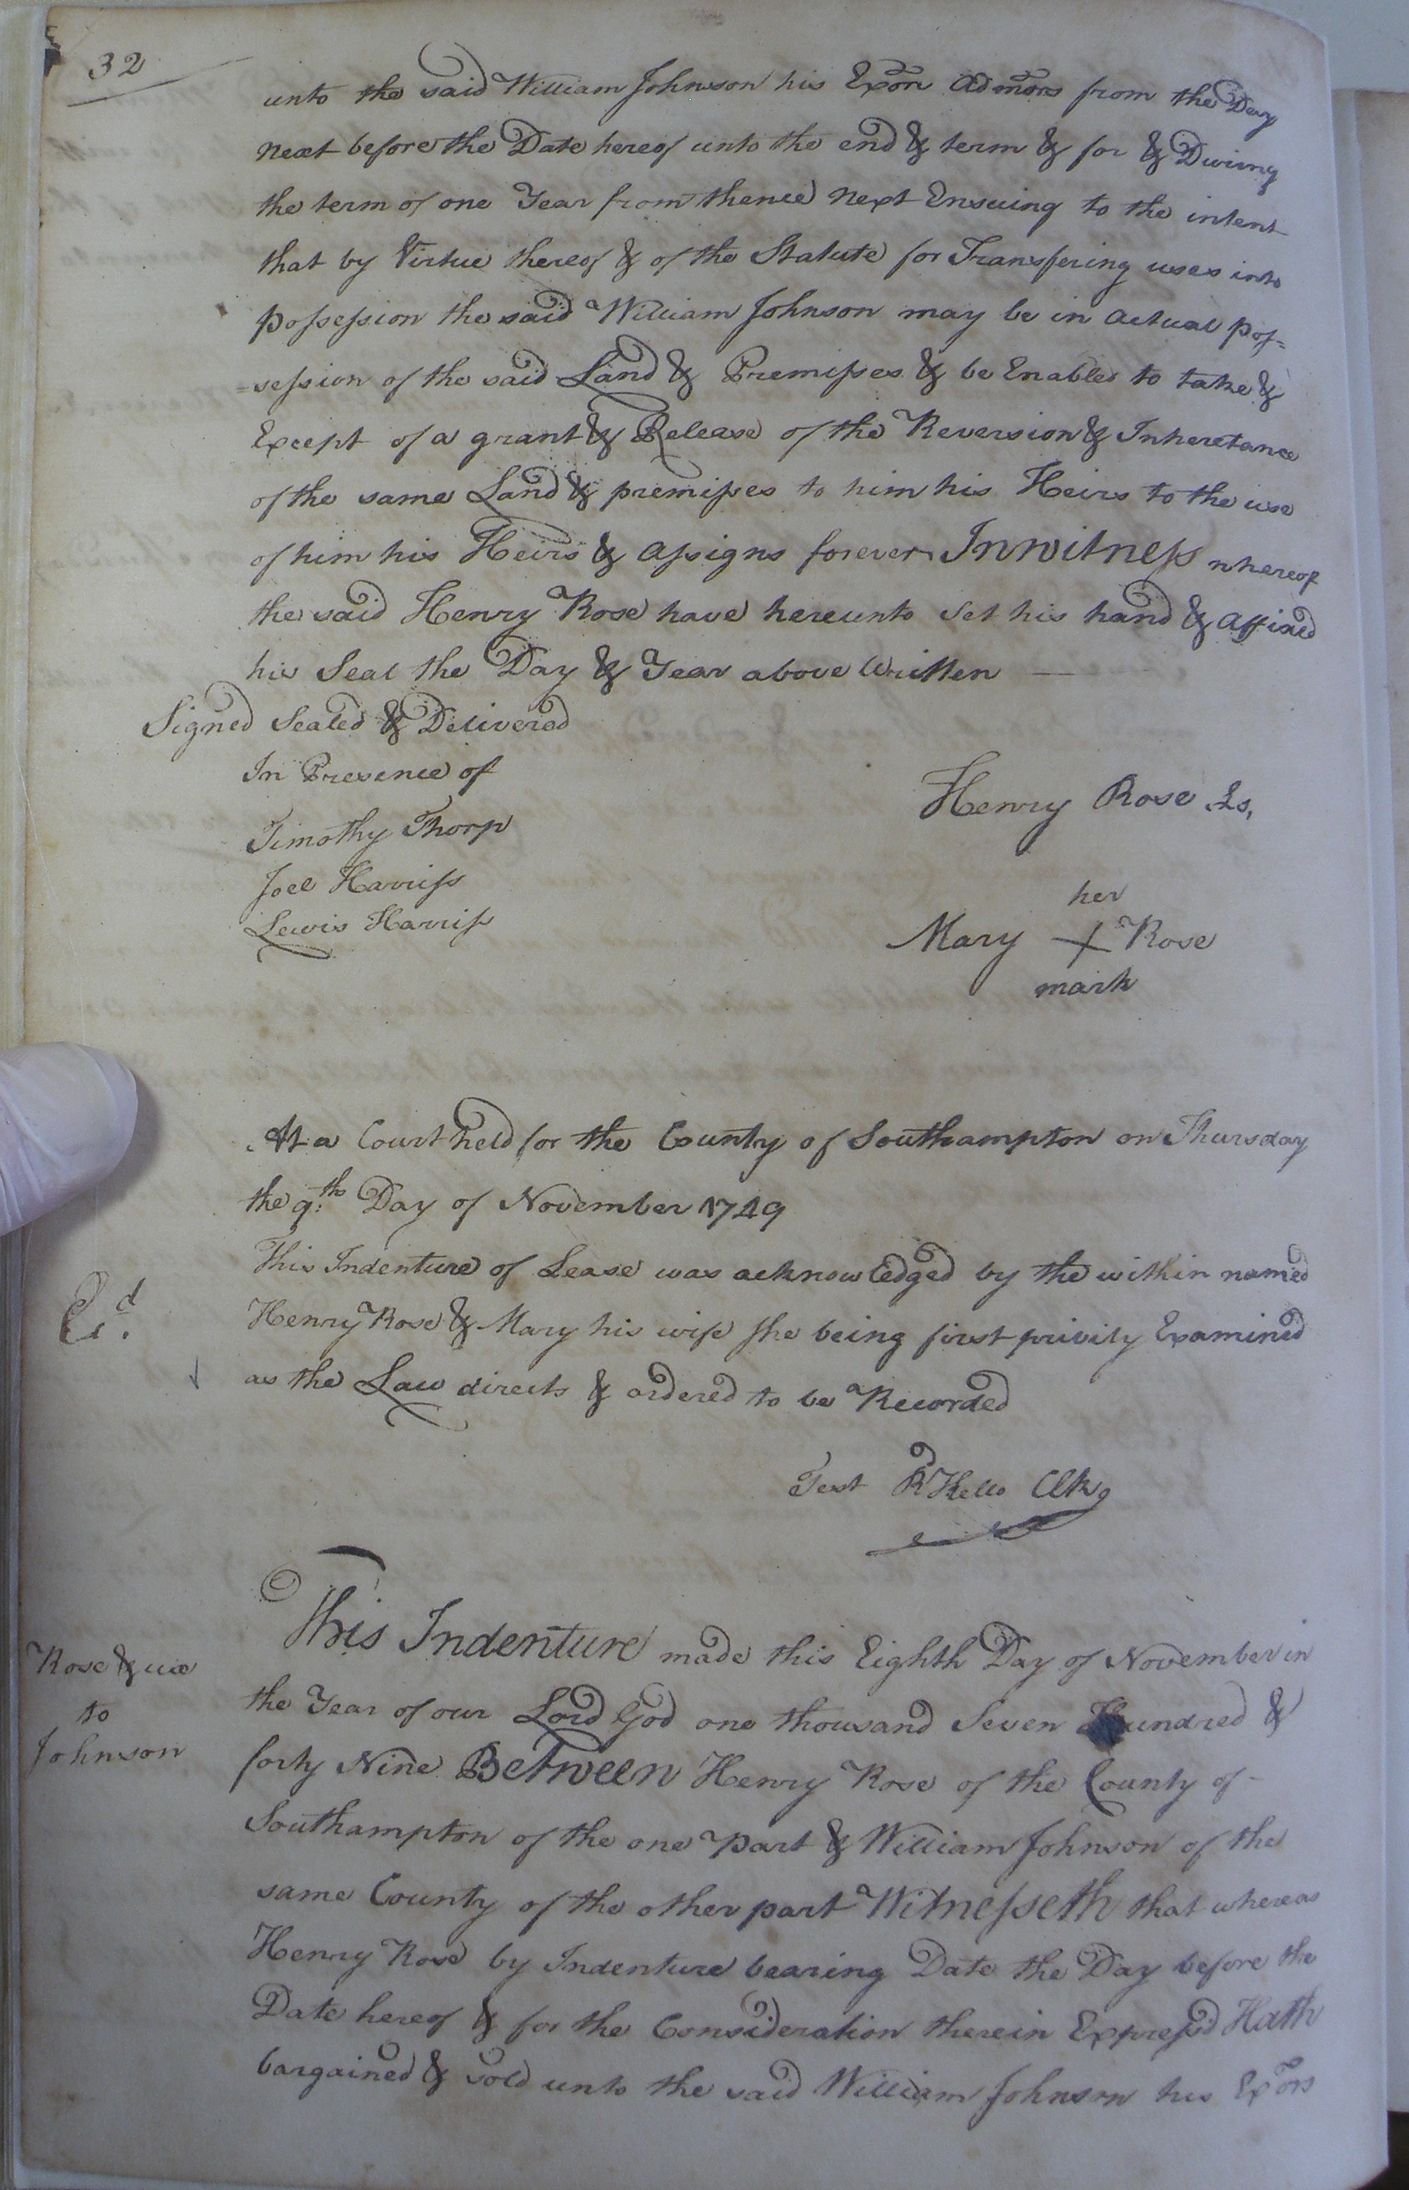 32
unto the said William Johnson his Exōrs Admōrs from the Day
next before the Date hereof unto the end & term & for & During
the term of one Year from thence next Ensuing to the intent
that by Virtue thereof & of the Statute for Transfering uses into
possession the said William Johnson may be in actual pos=
=session of the said Land & Premisses & be Enabled to take &
Except of a grant & Release of the Reversion & Inheretance
of the same Land & premisses to him his Heirs to the use
of him his Heirs & assigns forever In witness whereof
the said Henry Rose have hereunto set his hand & affixed
his Seal the Day & Year above Written
Signed Sealed & Delivered
In Presence of
Timothy Thorp
Joel Harriss
Lewis Harriss
Henry Rose Ls,
her
Mary + Rose
mark
At a Court held for the County of Southampton on Thursday
the 9th Day of November 1749
This Indenture of Lease was acknowledged by the within named
Henry Rose & Mary his wife she being first privily Examined
as the Law directs & ordered to be Recorded
Ed.
Test R Kello Clk
Rose & ux
to
Johnson
This Indenture made this Eighth Day of November in
the Year of our Lord God one thousand Seven Hundred &
forty Nine Between Henry Rose of the County of
Southampton of the one part & William Johnson of the
same County of the other part Witnesseth that whereas
Henry Rose by Indenture bearing Date the Day before the
Date hereof & for the Consideration therein Expressd Hath
bargained & sold unto the said William Johnson his Exors